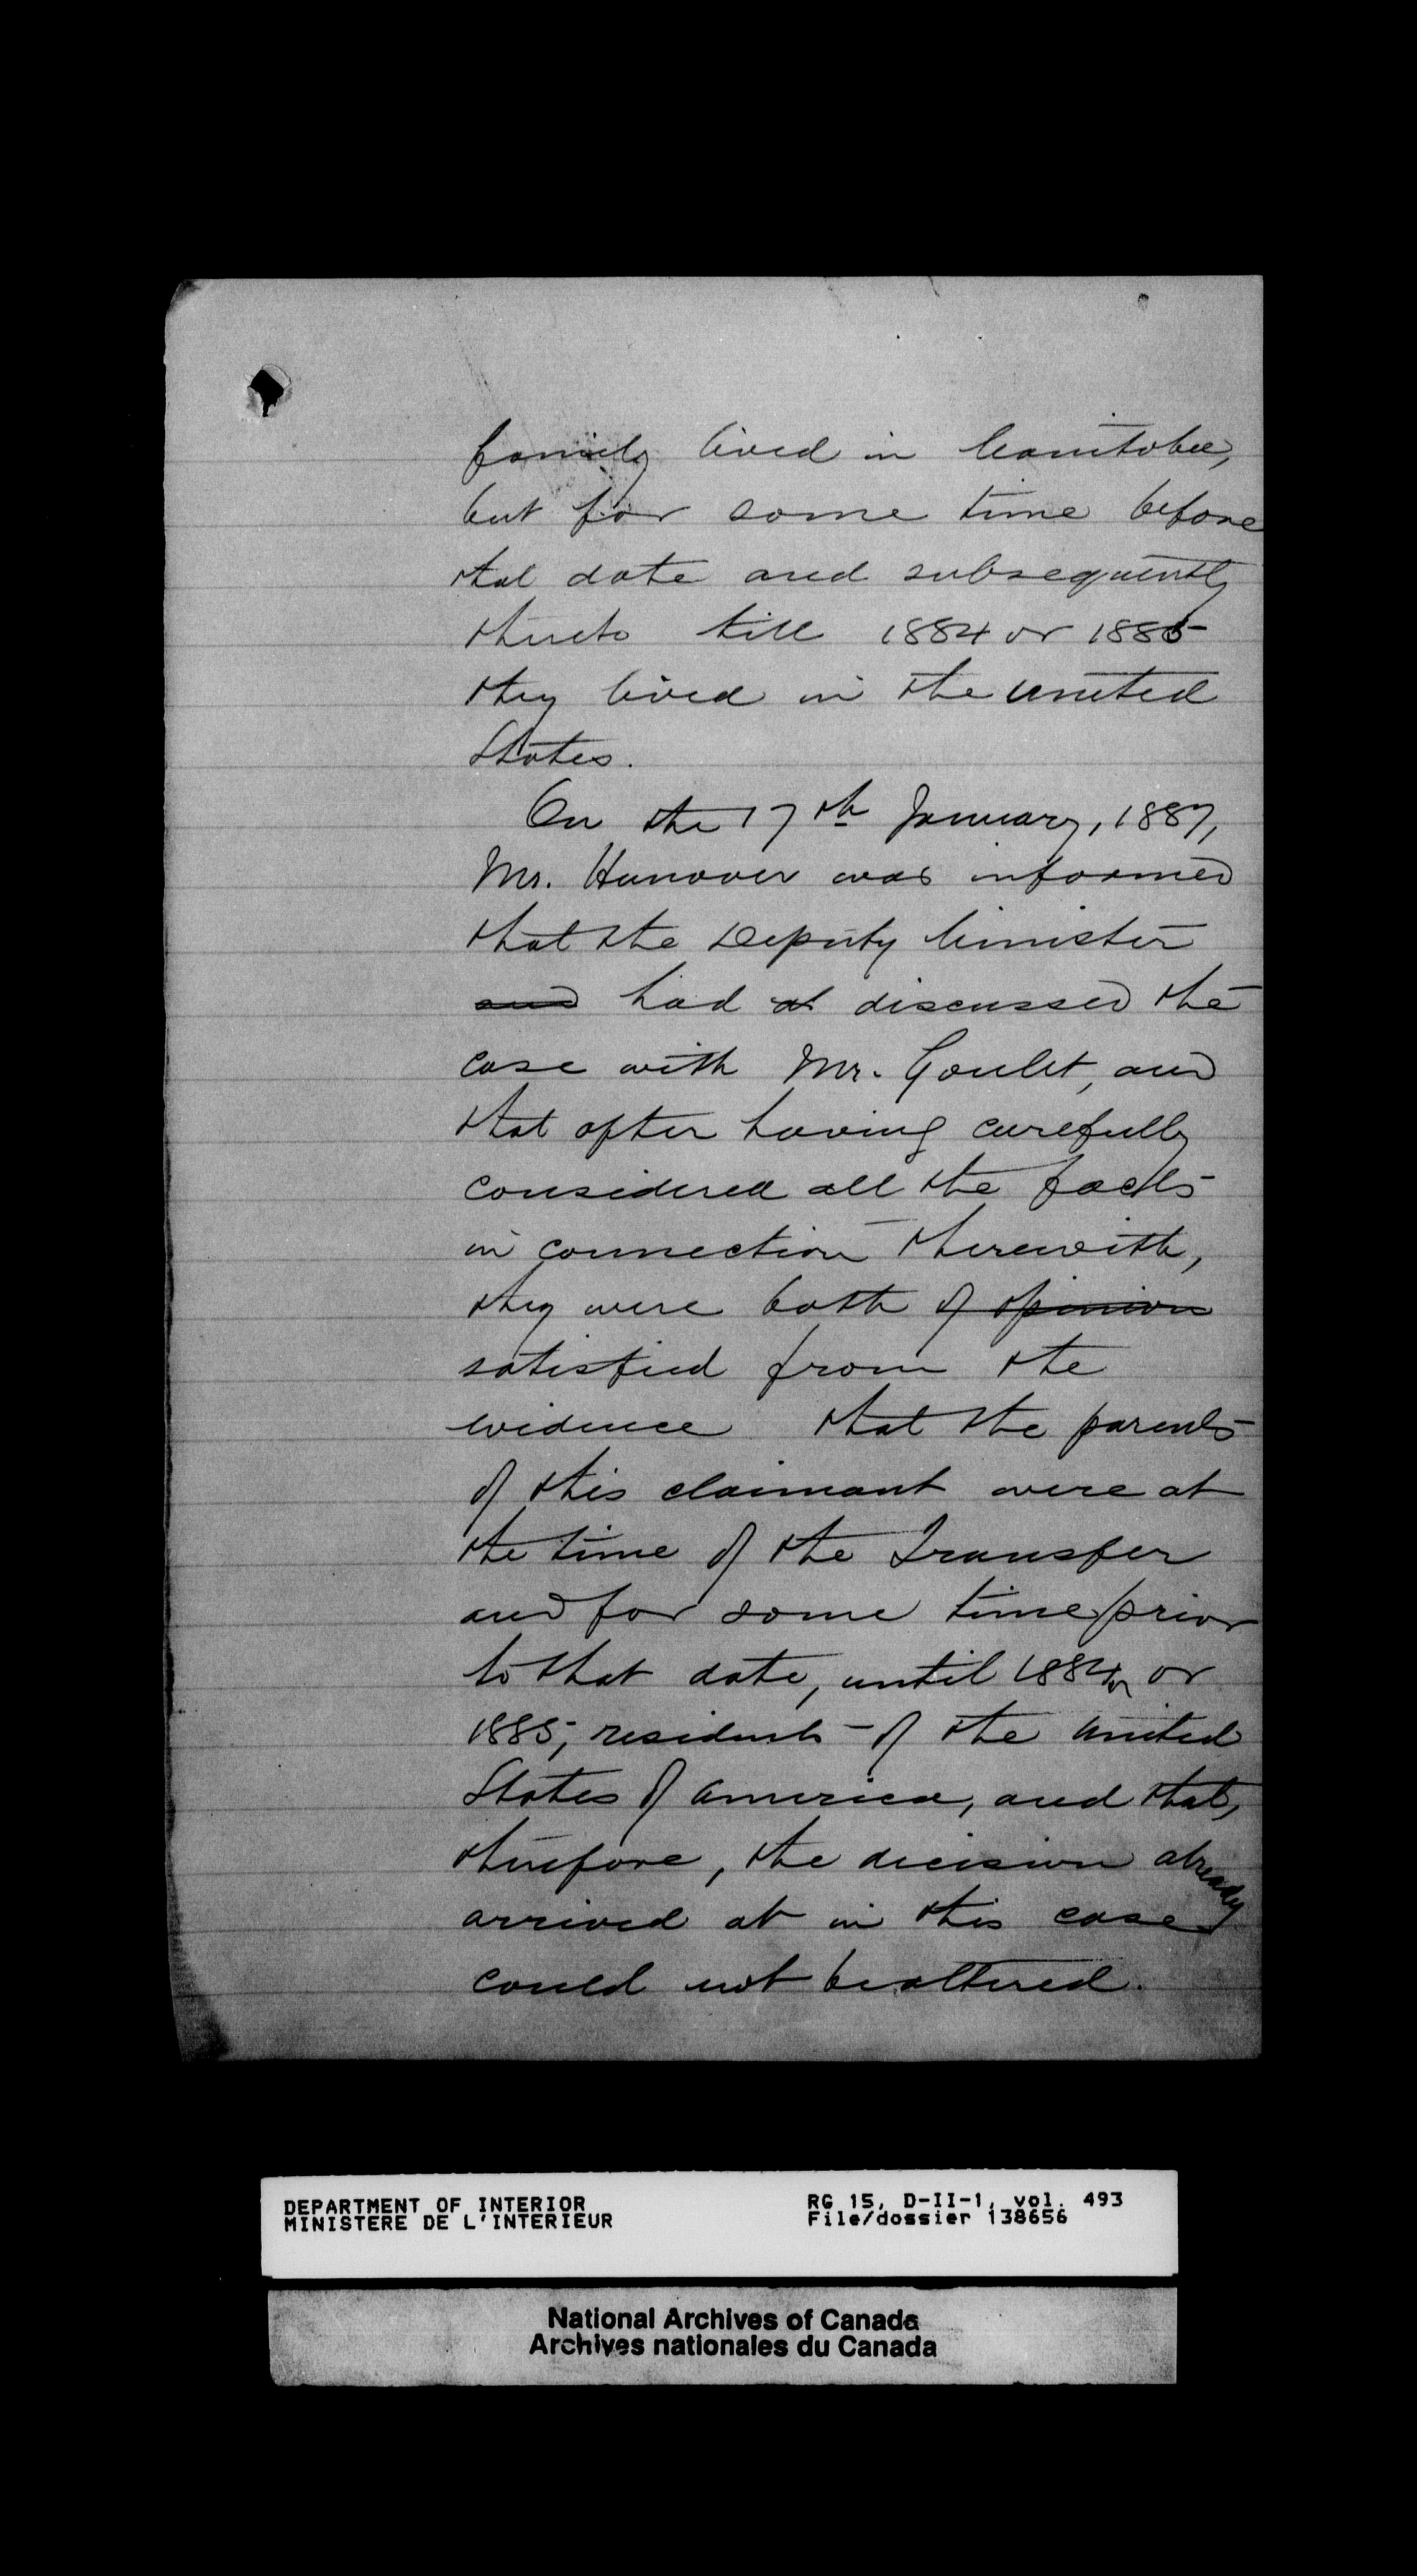 family lived in Manitoba,
but for some time before
that date and subsequently
thereto till 1884 or 1885
they lived in the United
States.
On the 17th January, 1887,
Mr. Hanover was informed
that the Deputy Minister
and had at discussed the
case with Mr. Goulet, and
that after having carefully
considered all the facts
in connection therewith,
they were both of opinion
satisfied from the
evidence that the parents
of this claimant were at
the time of the Transfer
and for some time prior
to that date, until 1884 or
1885, residents of the United
States of America, and that,
therefore, the decision already
arrived at in this case
could not be altered.
DEPARTMENT OF INTERIOR
MINISTERE DE L'INTERIEUR
RG 15, D-II-1, vol. 493
File/dossier 138656
National Archives of Canada
Archives nationales du Canada